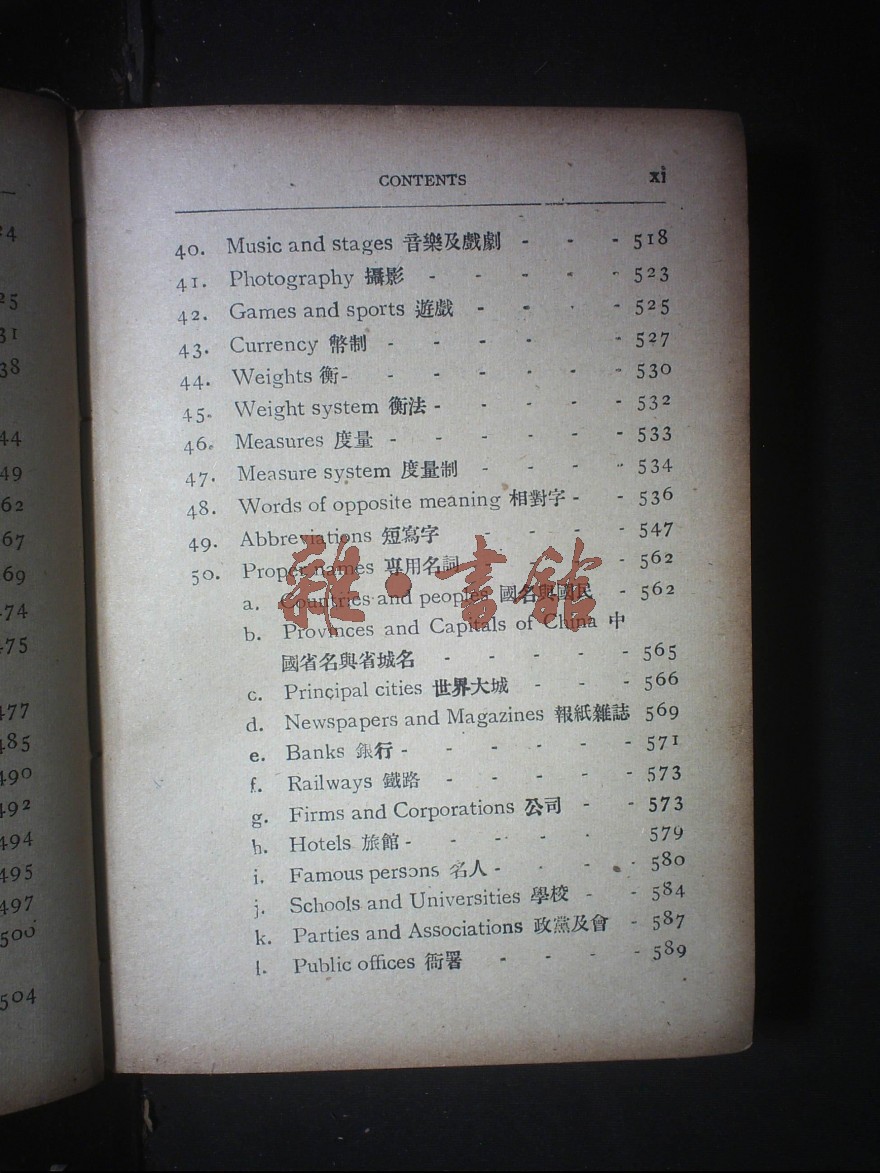 CONTENTS xi
40. Music and stages 音樂及戲劇 - - - 518
41. Photography 攝影 - - - - - 523
42. Games and sports 遊戲 - - - - 525
43. Currency 幣制 - - - - - 527
44. Weights 衡 - - - - - - 530
45. Weight system 衡法 - - - - - 532
46. Measures 度量 - - - - - - 533
47. Measure system 度量制 - - - - 534
48. Words of opposite meaning 相對字 - - 536
49. Abbreviations 短寫字 - - - - 547
50. Proper names 專用名詞 - 562
a. Countries and peoples 國名與國民 - 562
b. Provinces and Capitals of China 中
國省名與省城名 - - - - - 565
c. Principal cities 世界大城 - - - 566
d. Newspapers and Magazines 報紙雜誌 569
e. Banks 銀行 - - - - - - 571
f. Railways 鐵路 - - - - - 573
g. Firms and Corporations 公司 - - 573
h. Hotels 旅館 - - - - - 579
i. Famous persons 名人 - - - - 580
j. Schools and Universities 學校 - - 584
k. Parties and Associations 政黨及會 - 587
l. Public offices 衙署 - - - - - 589
雜·書館
24
25
31
38
44
49
62
67
69
474
475
477
485
490
492
494
495
497
500
504